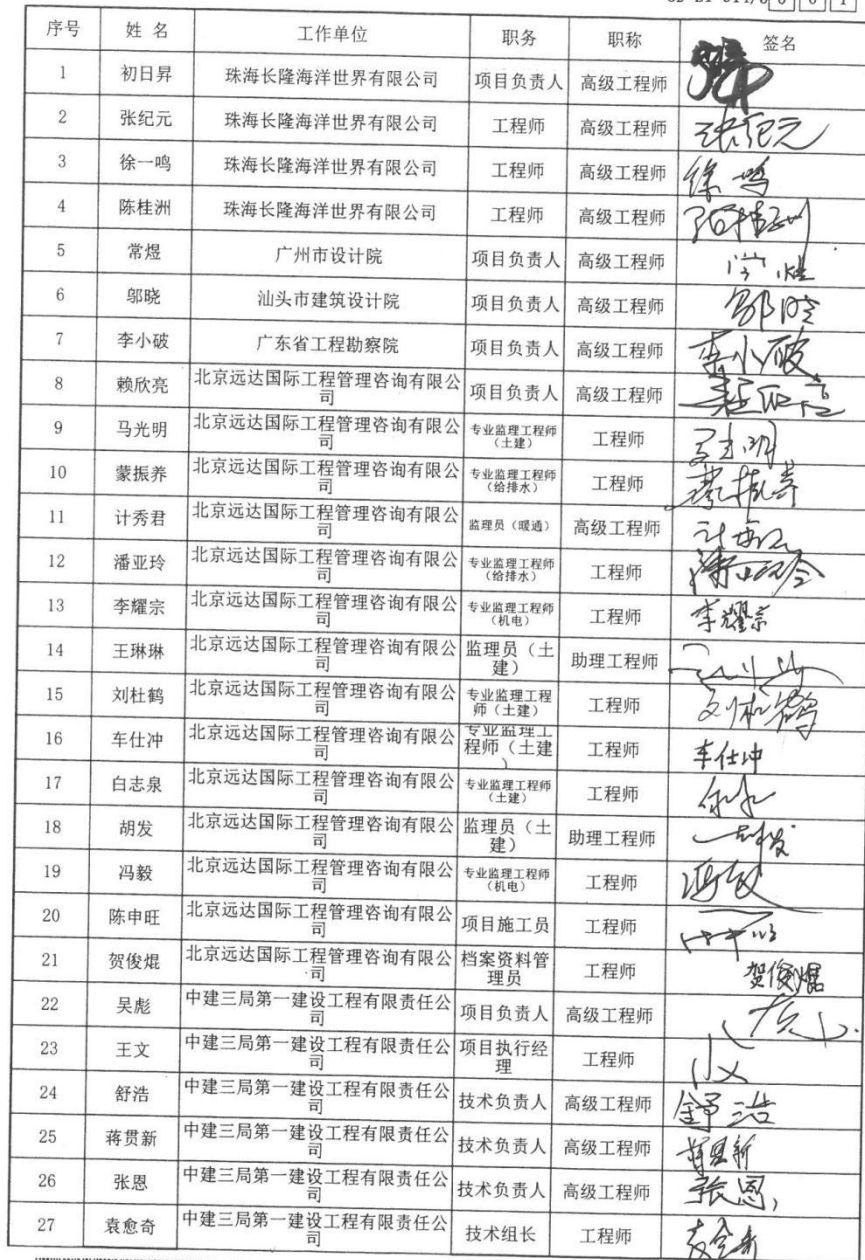 序号 姓 名 工作单位 职务 职称 签名
1 初日昇 珠海长隆海洋世界有限公司 项目负责人 高级工程师
2 张纪元 珠海长隆海洋世界有限公司 工程师 高级工程师 张纪元
3 徐一鸣 珠海长隆海洋世界有限公司 工程师 高级工程师 徐一鸣
4 陈桂洲 珠海长隆海洋世界有限公司 工程师 高级工程师 陈桂洲
5 常煜 广州市设计院 项目负责人 高级工程师 常煜
6 邬晓 汕头市建筑设计院 项目负责人 高级工程师 邬晓
7 李小破 广东省工程勘察院 项目负责人 高级工程师 李小破
8 赖欣亮 北京远达国际工程管理咨询有限公
司 项目负责人 高级工程师
9 马光明 北京远达国际工程管理咨询有限公
司 专业监理工程师
（土建） 工程师
10 蒙振养 北京远达国际工程管理咨询有限公
司 专业监理工程师
（给排水） 工程师
11 计秀君 北京远达国际工程管理咨询有限公
司 监理员（暖通） 高级工程师
12 潘亚玲 北京远达国际工程管理咨询有限公
司 专业监理工程师
（给排水） 工程师
13 李耀宗 北京远达国际工程管理咨询有限公
司 专业监理工程师
（机电） 工程师 李耀宗
14 王琳琳 北京远达国际工程管理咨询有限公
司 监理员（土
建） 助理工程师
15 刘杜鹤 北京远达国际工程管理咨询有限公
司 专业监理工程
师（土建） 工程师
16 车仕冲 北京远达国际工程管理咨询有限公
司 专业监理工
程师（土建
） 工程师 车仕冲
17 白志泉 北京远达国际工程管理咨询有限公
司 专业监理工程师
（土建） 工程师
18 胡发 北京远达国际工程管理咨询有限公
司 监理员（土
建） 助理工程师
19 冯毅 北京远达国际工程管理咨询有限公
司 专业监理工程师
（机电） 工程师 冯毅
20 陈申旺 北京远达国际工程管理咨询有限公
司 项目施工员 工程师
21 贺俊焜 北京远达国际工程管理咨询有限公
司 档案资料管
理员 工程师 贺俊焜
22 吴彪 中建三局第一建设工程有限责任公
司 项目负责人 高级工程师
23 王文 中建三局第一建设工程有限责任公
司 项目执行经
理 工程师
24 舒浩 中建三局第一建设工程有限责任公
司 技术负责人 高级工程师 舒浩
25 蒋贯新 中建三局第一建设工程有限责任公
司 技术负责人 高级工程师 蒋贯新
26 张恩 中建三局第一建设工程有限责任公
司 技术负责人 高级工程师 张恩
27 袁愈奇 中建三局第一建设工程有限责任公
司 技术组长 工程师